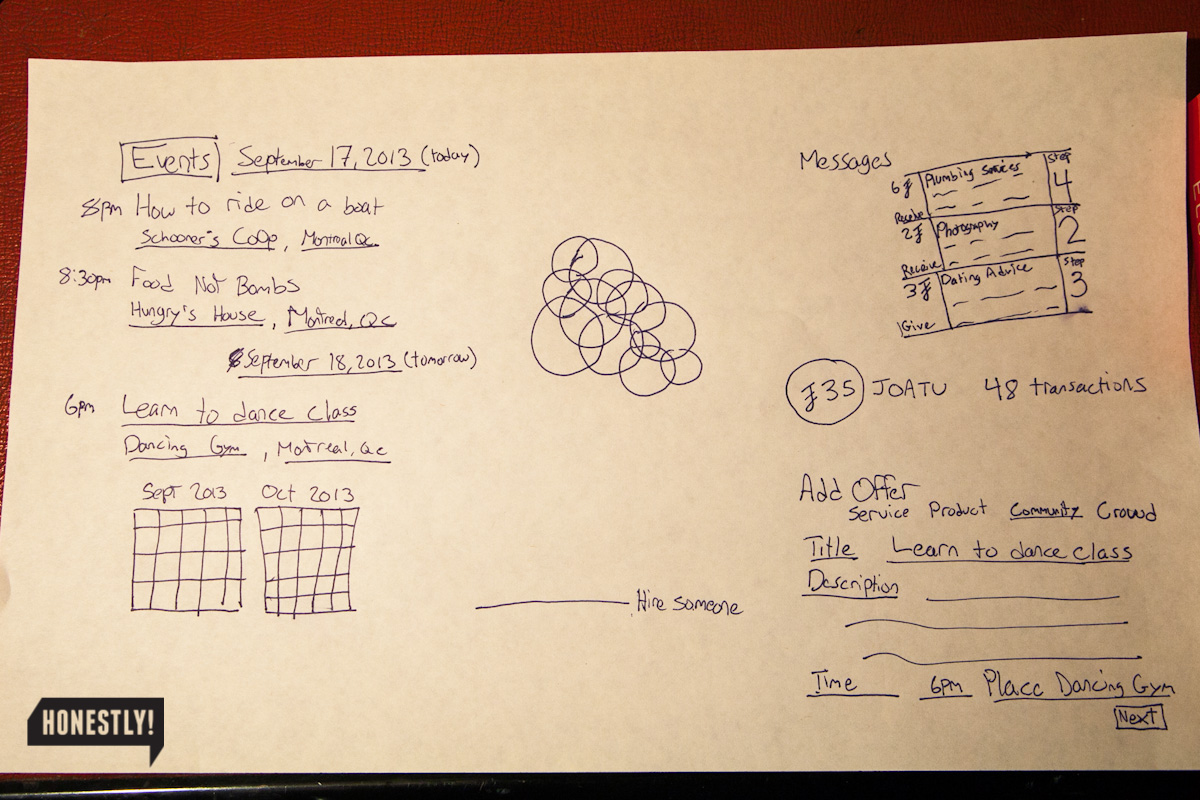 Events September 17, 2013 (today)
8pm How to ride on a boat
Schooner's CoOp, Montreal Qc.
8:30pm Food Not Bombs
Hungry's House, Montreal, Qc
September 18, 2013 (tomorrow)
6pm Learn to dance class
Dancing Gym, Montreal, Qc
Sept 2013 Oct 2013
Hire someone
Messages
6J Plumbing Services Step
4
Receive
2J Photography Step
2
Receive
3J Dating Advice Step
3
Give
J35 JOATU 48 transactions
Add Offer
Service Product Community Crowd
Title Learn to dance class
Description
Time 6pm Place Dancing Gym
Next
HONESTLY!